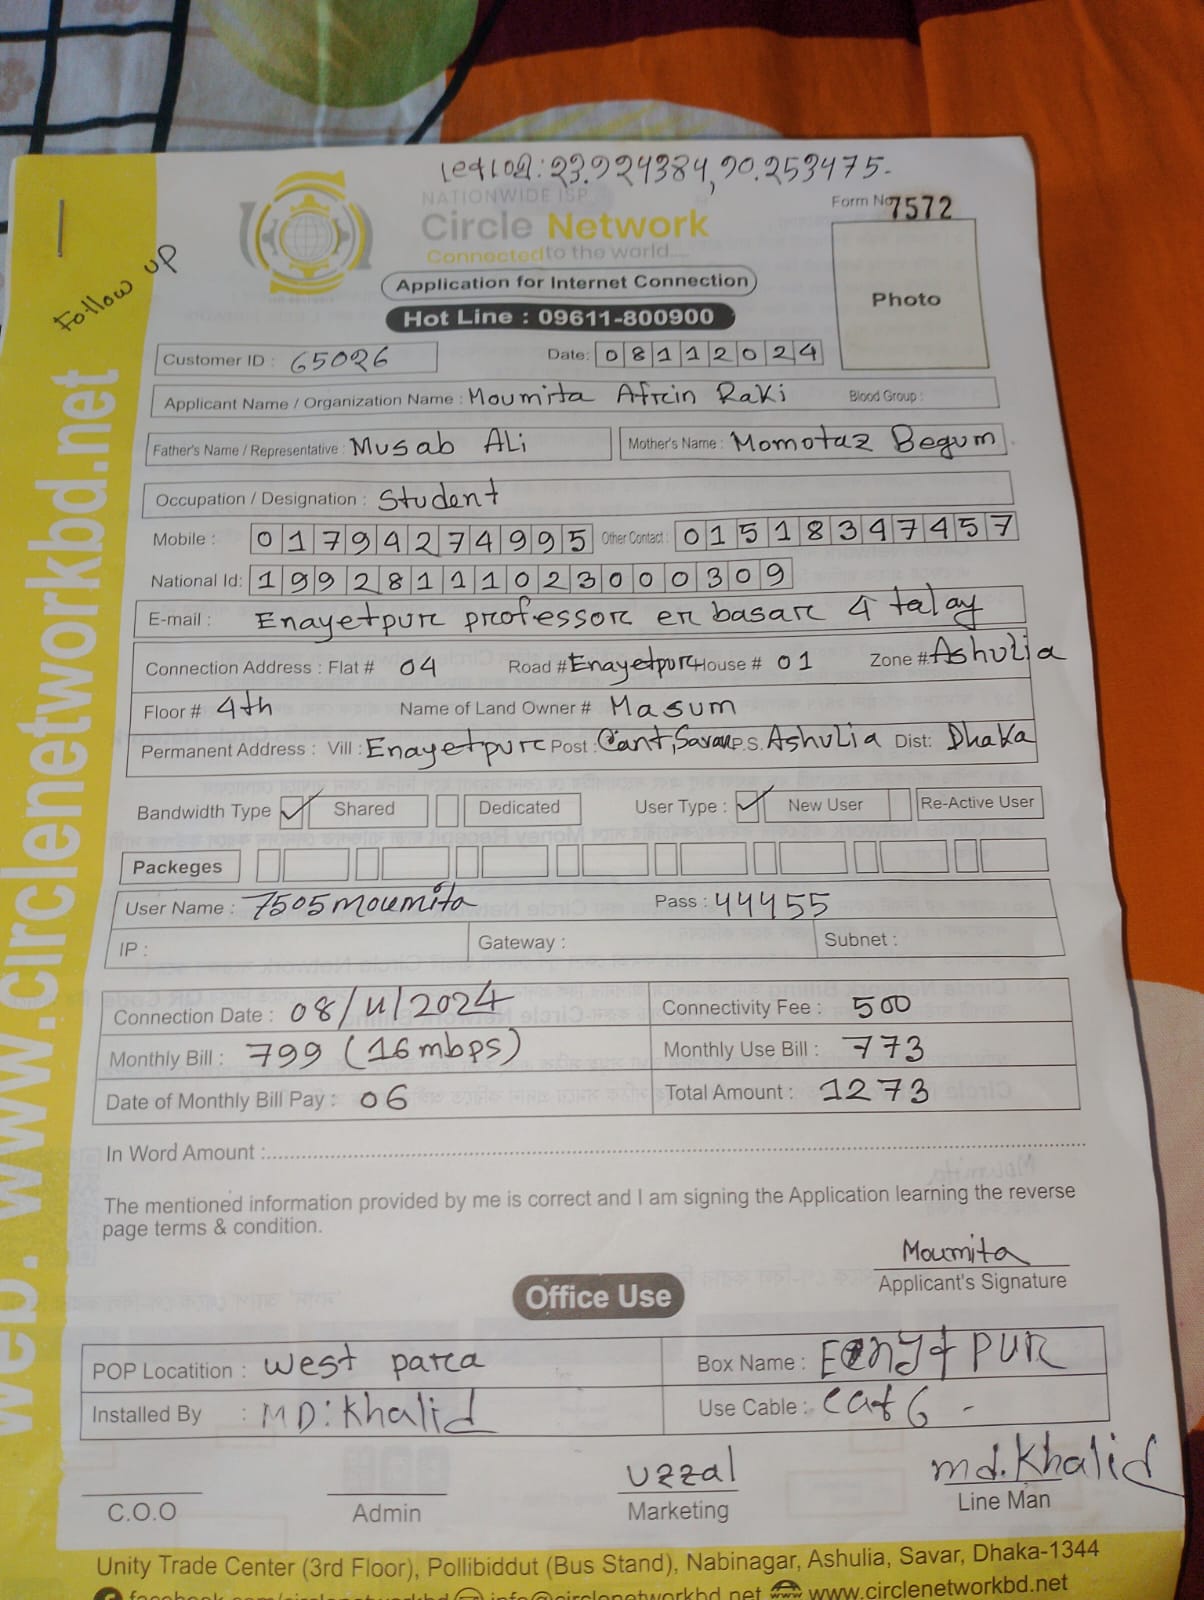 23.924384,90.253475.
NATIONWIDE ISP
Circle Network
Connected to the world....
Form No 7572
Follow UP
Application for Internet Connection
Hot Line : 09611-800900
Photo
Customer ID : 65026 Date: 08112024
Applicant Name / Organization Name : Moumita Afrin Raki Blood Group :
Father's Name / Representative : Musab Ali Mother's Name : Momotaz Begum
Occupation / Designation : Student
Mobile : 01794274995 Other Contact : 01518347457
National Id: 19928111023000309
E-mail : Enayetpur professor er basar 4 talay
Connection Address : Flat # 04 Road # Enayetpur House # 01 Zone # Ashulia
Floor # 4th Name of Land Owner # Masum
Permanent Address : Vill : Enayetpur Post : Cant, Savar P.S. Ashulia Dist: Dhaka
Bandwidth Type ✓ Shared Dedicated User Type : ✓ New User Re-Active User
Packeges
User Name : 7505moumita Pass : 44455
IP : Gateway : Subnet :
Connection Date : 08/11/2024 Connectivity Fee : 500
Monthly Bill : 799 (16mbps) Monthly Use Bill : 773
Date of Monthly Bill Pay : 06 Total Amount : 1273
In Word Amount :
The mentioned information provided by me is correct and I am signing the Application learning the reverse
page terms & condition.
Moumita
Applicant's Signature
Office Use
POP Locatition : West para Box Name : PUR
Installed By : MD: Khalid Use Cable : Cat 6 -
Uzzal md. Khalid
C.O.O Admin Marketing Line Man
Unity Trade Center (3rd Floor), Pollibiddut (Bus Stand), Nabinagar, Ashulia, Savar, Dhaka-1344
info@circlenetworkbd.net www.circlenetworkbd.net
web: www.circlenetworkbd.net